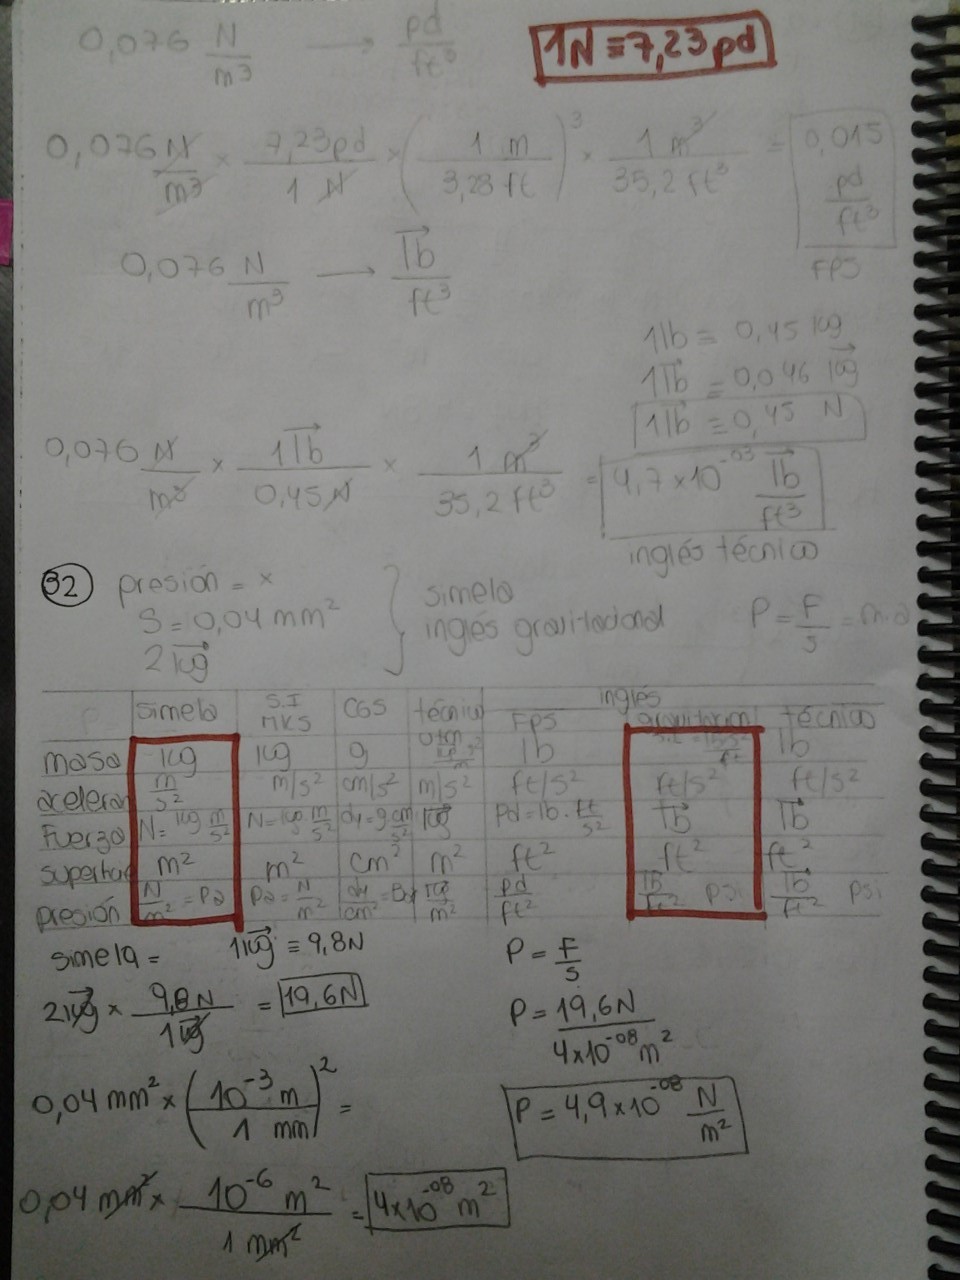 0,076 N/m³ → pd/ft³
1N ≡ 7,23 pd
0,076 N/m³ × 7,23pd/1 N × (1 m/3,28 ft)³ × 1 m³/35,2 ft³ = 0,015 pd/ft³
FPS
0,076 N/m³ → lb⃗/ft³
1lb ≡ 0,45 kg
1lb⃗ ≡ 0,046 kg⃗
1lb ≡ 0,45 N
0,076 N/m³ × 1lb⃗/0,45N × 1 m³/35,2 ft³ = 4,7×10⁻⁰³ lb⃗/ft³
inglés técnico
32 presión = x
S = 0,04 mm²
2 kg⃗
simela
inglés gravitacional
P = F/s = m.a
inglés
simela S.I MKS CGS técnico FPS gravitacion técnico
masa kg kg g utm lb lb
aceleran m/s² m/s² cm/s² m/s² ft/s² ft/s² ft/s²
Fuerza N=kg m/s² N=kg m/s² dy=g cm/s² kg⃗ Pd=lb.ft/s² lb⃗ lb⃗
superfici m² m² cm² m² ft² ft² ft²
presión N/m²=Pa Pa=N/m² dy/cm²=Ba kg⃗/m² pd/ft² lb⃗/ft² psi lb⃗/ft² psi
simela = 1kg⃗ ≡ 9,8N
2kg⃗ × 9,8N/1kg⃗ = 19,6N
0,04 mm² × (10⁻³ m/1 mm)² =
0,04 mm² × 10⁻⁶ m²/1 mm² = 4×10⁻⁰⁸ m²
P = F/s
P = 19,6N/4×10⁻⁰⁸m²
P = 4,9×10⁻⁰⁸ N/m²